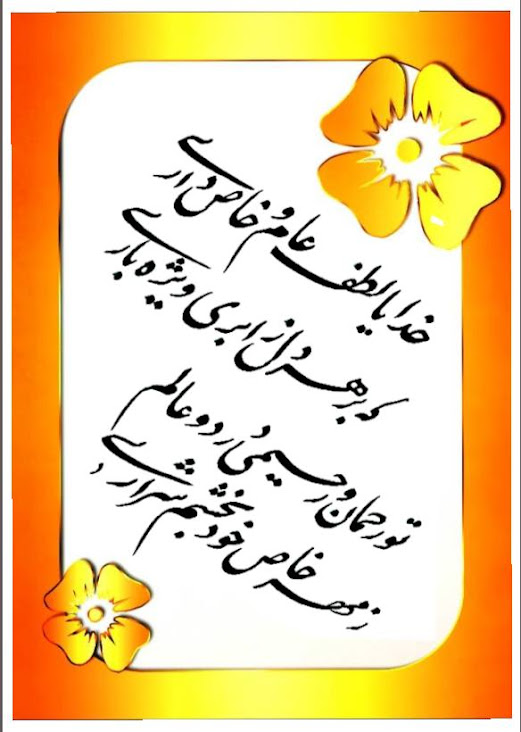 خدایا لطف عام و خاص داری
که بر هر دل ز ابری ویژه باری
تو رحمان و رحیمی در دو عالم
ز مهر خاص خود بخشم شراری